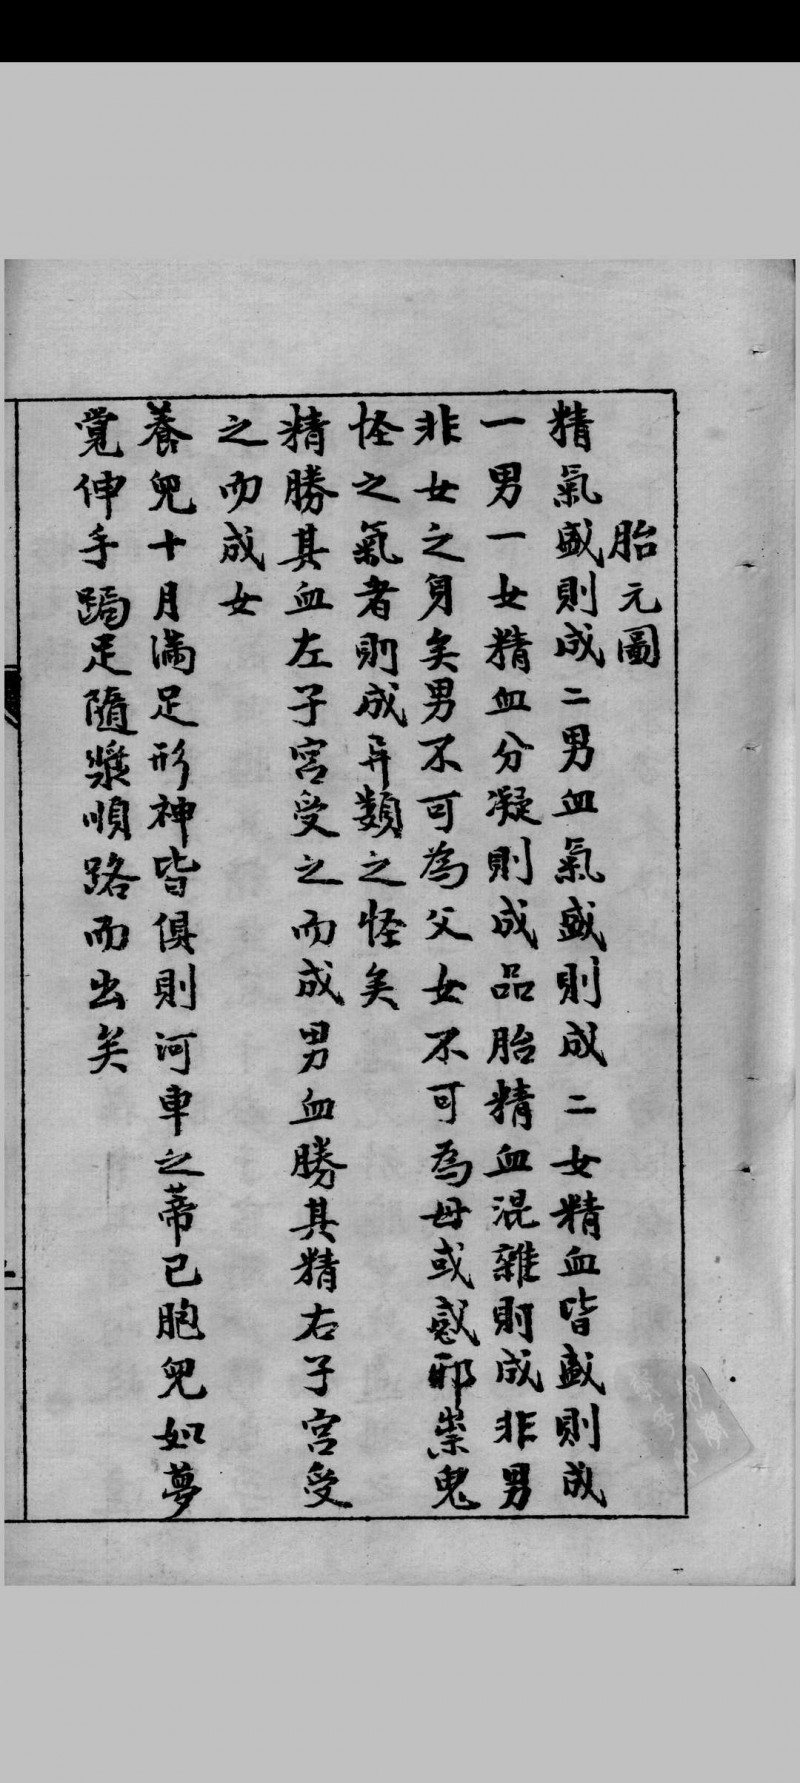 胎元圖
精氣盛則成二男血氣盛則成二女精血皆盛則成
一男一女精血分凝則成品胎精血混雜則成非男
非女之身矣男不可為父女不可為母或感邪祟鬼
怪之氣者則成异類之怪矣
精勝其血左子宮受之而成男血勝其精右子宮受
之而成女
養兒十月滿足形神皆俱則河車之蒂已胞兒如夢
覺伸手跼足隨漿順路而出矣